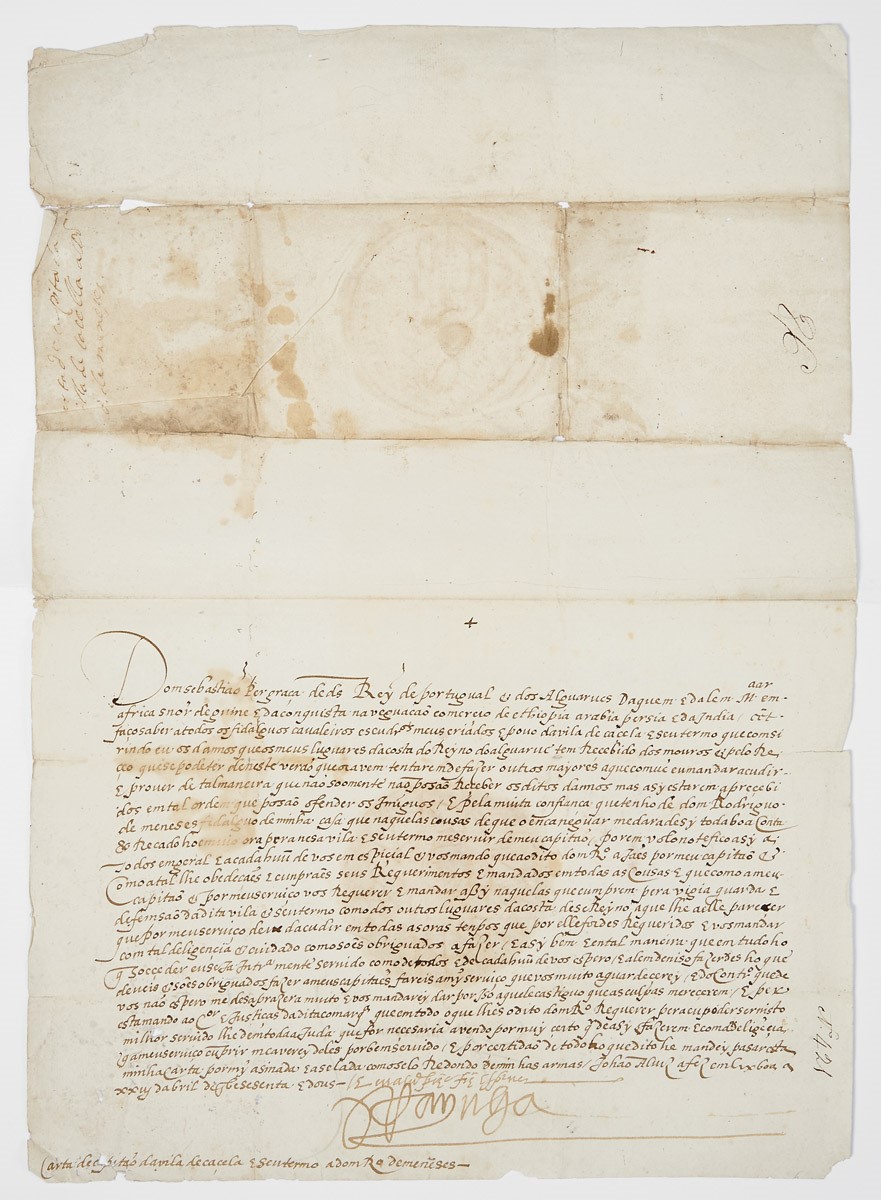 +
Dom sebastiaõ per graca de ds Rey de portugual & dos Alguarues Daquem E dalem Mar em
africa snõr de guine E da conquista naueguacaõ comercio de ethiopia arabia persia E da India / etc
faco saber a todos os fidalguos caualeiros escudros meus criados E pouo da vila de cacela E seu termo que comsi
rindo eu os danos que os meus luguares da costa do Reyno do alguarue tem Recebido dos mouros & pelo Re
ceo que se pode ter de neste veraõ que ora vem tentarem de fazer outros mayores a que comue eu mandar acudir
E prouer de tal maneira que naõ soomente naõ posaõ Receber os ditos danos mas asy estarem apercebi
dos em tal ordem que posaõ ofender os Imiguos / E pela muita confianca que tenho de dom Rodriguo
de meneses fidalguo de minha casa que naquelas cousas de que o encareguar me dara de sy toda boa Conta
& Recado ho emuio ora pera nesa vila E seu termo me seruir de meu capitaõ, porem volo notefico asy a
todos em geral E a cada huũ de vos em espicial & vos mando que ao dito dom Ro ajaes por meu capitaõ &
Como a tal lhe obedecaes E cumpraes seus Requerimentos E mandados em todas as Cousas E que como a meu
capitaõ & por meu seruico vos Requerer E mandar asy naquelas que cumprem pera vigia guarda E
defemsaõ da dita vila & seu termo como dos outros luguares da costa dese Reyno a que lhe a elle parecer
que por meu seruico deue dacudir em todas as oras tenpos que por elle foides Requeridos E vos mandar
com tal deligencia & cuidado como soes obriguados a fazer / E asy bem E em tal maneira que em tudo ho
q soceder eu seja Intra mente seruido como de todos E de cada huũ de vos espero / E alem deniso fazerdes ho que
deueis & soes obriguados fazer a meus capitaes fareis a my seruico que vos muito aguardecerey / E do Contro que de
vos naõ espero me desaprazera muito E vos mandarey dar por Iso aquele castiguo que as culpas merecerem / E per
esta mando ao Cor E Justicas da dita comarqa que em todo o que lhes o dito dom Ro Requerer pera cu poder ser nisto
milhor seruido lhe dem toda ajuda que for necesaria avendo por muy certo q de asy ho fazerem E com a deligencia
q a meu seruico cumprir me averey deles por bem seruido / E por certidaõ de todo ho que dito he mandey pasar esta
minha carta por my asinada E aselada com o selo Redondo de minhas armas / Johaõ Aluz a fez em lixboa a
xxbij dabril de Jbc sesenta E dous
Raynha
Carta de capitaõ da vila de cacela E seu termo a dom Ro de meneses